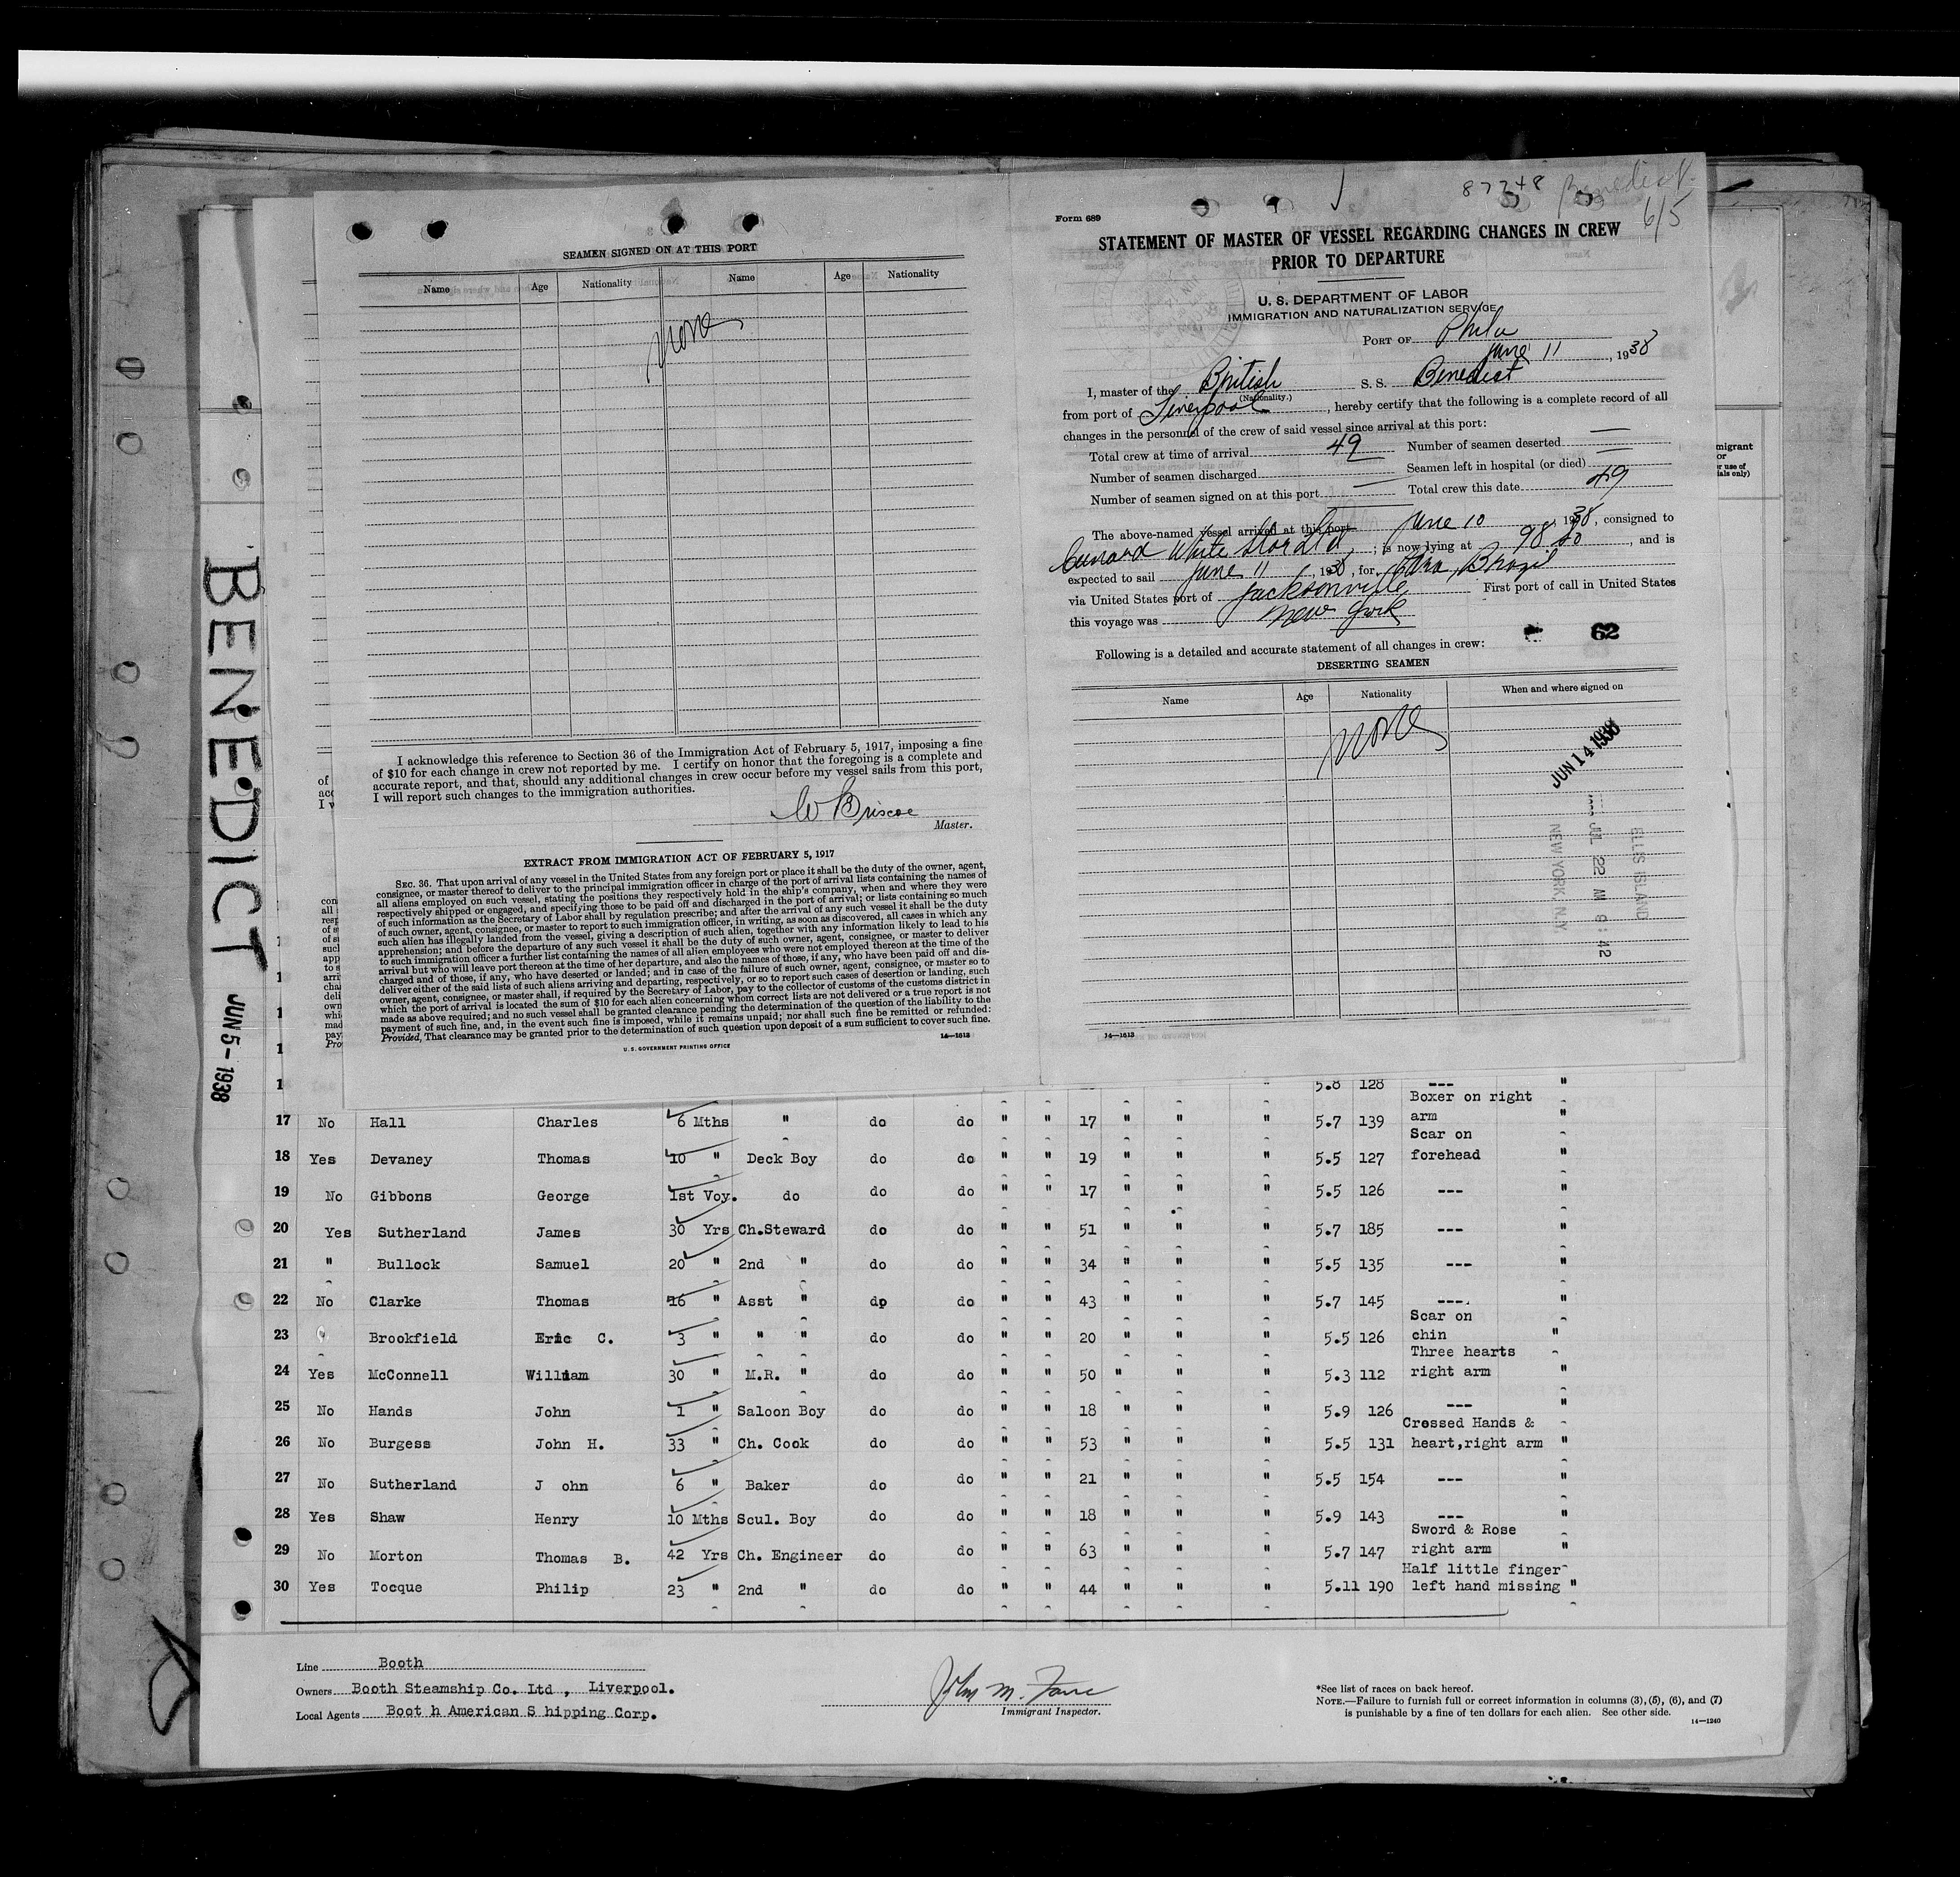 87248 Benedict
6/5
SEAMEN SIGNED ON AT THIS PORT
Name Age Nationality Name Age Nationality
None
I acknowledge this reference to Section 36 of the Immigration Act of February 5, 1917, imposing a fine
of $10 for each change in crew not reported by me. I certify on honor that the foregoing is a complete and
accurate report, and that, should any additional changes in crew occur before my vessel sails from this port,
I will report such changes to the immigration authorities.
W Briscoe
Master.
EXTRACT FROM IMMIGRATION ACT OF FEBRUARY 5, 1917
SEC. 36. That upon arrival of any vessel in the United States from any foreign port or place it shall be the duty of the owner, agent,
consignee, or master thereof to deliver to the principal immigration officer in charge of the port of arrival lists containing the names of
all aliens employed on such vessel, stating the positions they respectively hold in the ship's company, when and where they were
respectively shipped or engaged, and specifying those to be paid off and discharged in the port of arrival; or lists containing so much
of such information as the Secretary of Labor shall by regulation prescribe; and after the arrival of any such vessel it shall be the duty
of such owner, agent, consignee, or master to report to such immigration officer, in writing, as soon as discovered, all cases in which any
such alien has illegally landed from the vessel, giving a description of such alien, together with any information likely to lead to his
apprehension; and before the departure of any such vessel it shall be the duty of such owner, agent, consignee, or master to deliver
to such immigration officer a further list containing the names of all alien employees who were not employed thereon at the time of the
arrival but who will leave port thereon at the time of her departure, and also the names of those, if any, who have been paid off and dis-
charged and of those, if any, who have deserted or landed; and in case of the failure of such owner, agent, consignee, or master so to
deliver either of the said lists of such aliens arriving and departing, respectively, or so to report such cases of desertion or landing, such
owner, agent, consignee, or master shall, if required by the Secretary of Labor, pay to the collector of customs of the customs district in
which the port of arrival is located the sum of $10 for each alien concerning whom correct lists are not delivered or a true report is not
made as above required; and no such vessel shall be granted clearance pending the determination of the question of the liability to the
payment of such fine, and, in the event such fine is imposed, while it remains unpaid; nor shall such fine be remitted or refunded:
Provided, That clearance may be granted prior to the determination of such question upon deposit of a sum sufficient to cover such fine.
U. S. GOVERNMENT PRINTING OFFICE 14—1613
Form 689
STATEMENT OF MASTER OF VESSEL REGARDING CHANGES IN CREW
PRIOR TO DEPARTURE
U. S. DEPARTMENT OF LABOR
IMMIGRATION AND NATURALIZATION SERVICE
PORT OF Phila
June 11, 1938
I, master of the British S. S. Benedict
(Nationality.)
from port of Liverpool, hereby certify that the following is a complete record of all
changes in the personnel of the crew of said vessel since arrival at this port:
Total crew at time of arrival 49 Number of seamen deserted —
Number of seamen discharged — Seamen left in hospital (or died) —
Number of seamen signed on at this port — Total crew this date 49
The above-named vessel arrived at this port June 10, 1938, consigned to
Cunard White Star Ltd, ; is now lying at 98 So, and is
expected to sail June 11, 1938, for Para, Brazil
via United States port of Jacksonville First port of call in United States
this voyage was New York
62
Following is a detailed and accurate statement of all changes in crew:
DESERTING SEAMEN
Name Age Nationality When and where signed on
None
JUN 14 1938
ELLIS ISLAND
JUL 22 AM 8:42
NEW YORK, N.Y.
14—1613
migrant
or
r use of
ials only)
BENEDICT JUN 5-1938
5.8 128 ---  "
17 No Hall Charles 6 Mths " do do " " 17 " " " 5.7 139 Boxer on right arm "
18 Yes Devaney Thomas 10 " Deck Boy do do " " 19 " " " 5.5 127 Scar on forehead "
19 No Gibbons George 1st Voy. do do do " " 17 " " " 5.5 126 --- "
20 Yes Sutherland James 30 Yrs Ch.Steward do do " " 51 " " " 5.7 185 --- "
21 " Bullock Samuel 20 " 2nd " do do " " 34 " " " 5.5 135 --- "
22 No Clarke Thomas 16 " Asst " do do " " 43 " " " 5.7 145 ---. "
23 Brookfield Eric C. 3 " " " do do " " 20 " " " 5.5 126 Scar on chin "
24 Yes McConnell William 30 " M.R. " do do " " 50 " " " 5.3 112 Three hearts right arm "
25 No Hands John 1 " Saloon Boy do do " " 18 " " " 5.9 126 --- "
26 No Burgess John H. 33 " Ch. Cook do do " " 53 " " " 5.5 131 Crossed Hands & heart,right arm "
27 No Sutherland J ohn 6 " Baker do do " " 21 " " " 5.5 154 --- "
28 Yes Shaw Henry 10 Mths Scul. Boy do do " " 18 " " " 5.9 143 --- "
29 No Morton Thomas B. 42 Yrs Ch. Engineer do do " " 63 " " " 5.7 147 Sword & Rose right arm "
30 Yes Tocque Philip 23 " 2nd " do do " " 44 " " " 5.11 190 Half little finger left hand missing "
Line Booth
Owners Booth Steamship Co. Ltd , Liverpool.
Local Agents Boot h American S hipping Corp.
Immigrant Inspector.
*See list of races on back hereof.
NOTE.—Failure to furnish full or correct information in columns (3), (5), (6), and (7)
is punishable by a fine of ten dollars for each alien. See other side.
14—1240